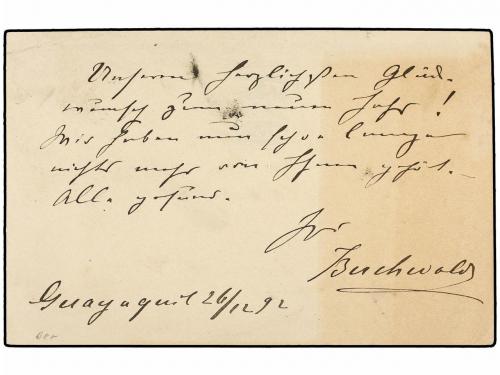 Unseren herzlichsten Glück-
wunsch zum neuen Jahr!
Wir haben nun schon lange
nichts mehr von Ihnen gehört.
Alle gesund.
Ihr
Buchwald
Guayaquil 26/12 92